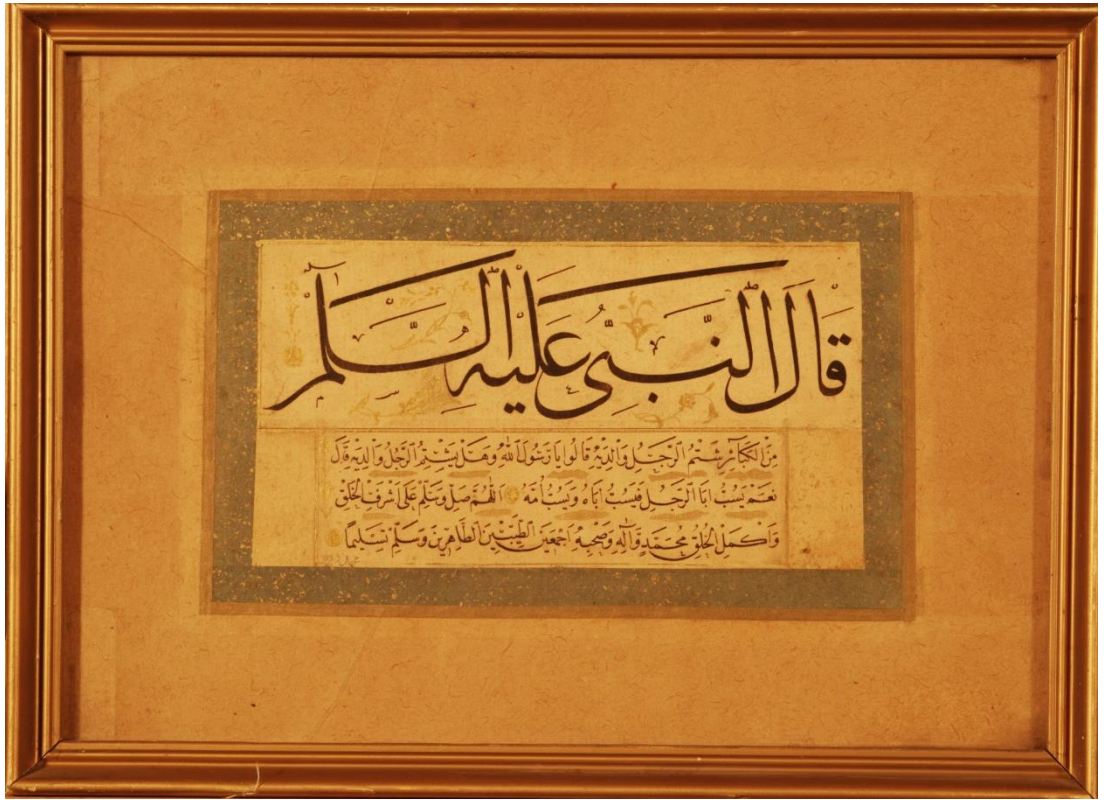 قَالَ النَّبِىُّ عَلَيْهِ السَّلٰمْ
مِنَ الْكَبَآئِرِ شَتْمُ الرَّجُلِ وَالِدَيْهِ قَالُوا يَا رَسُولَ اللهِ وَهَلْ يَشْتِمُ الرَّجُلُ وَالِدَيْهِ قَالَ
نَعَمْ يَسُبُّ اَبَا الرَّجُلِ فَيَسُبُّ اَبَاهُ وَيَسُبُّ اُمَّهُ اَللّٰهُمَّ صَلِّ وَسَلِّمْ عَلَى اَشْرَفِ الْخَلْقِ
وَاَكْمَلِ الْخَلْقِ مُحَمَّدٍ وَآلِهِ وَصَحْبِهِ اَجْمَعِينَ الطَّيِّبِينَ الطَّاهِرِينَ وَسَلِّمْ تَسْلِيمًا